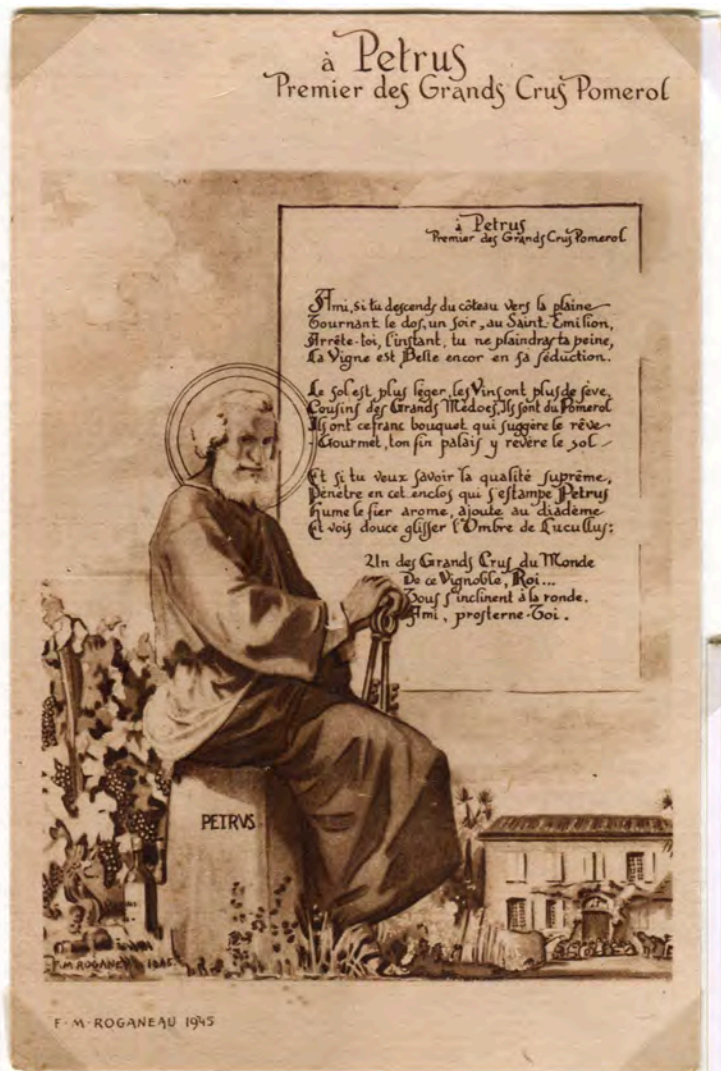 à Petrus
Premier des Grands Crus Pomerol
à Petrus
Premier des Grands Crus Pomerol
Ami, si tu descends du côteau vers la plaine
Tournant le dos, un soir, au Saint-Emilion,
Arrête-toi, l'instant, tu ne plaindras ta peine,
La Vigne est Belle encor en sa séduction.
Le sol est plus léger, les Vins ont plus de sève,
Cousins des Grands Médocs, Ils sont du Pomerol
Ils ont ce franc bouquet qui suggère le rêve
- Gourmet, ton fin palais y révère le sol -
Et si tu veux savoir la qualité suprême,
Pénètre en cet enclos qui s'estampe Petrus
Hume le fier arome, ajoute au diadème
Et vois douce glisser l'Ombre de Lucullus:
Un des Grands Crus du Monde
De ce Vignoble, Roi...
Tous s'inclinent à la ronde.
Ami, prosterne-Toi.
PETRVS
F. M. ROGANEAU 1945
F. M. ROGANEAU 1945